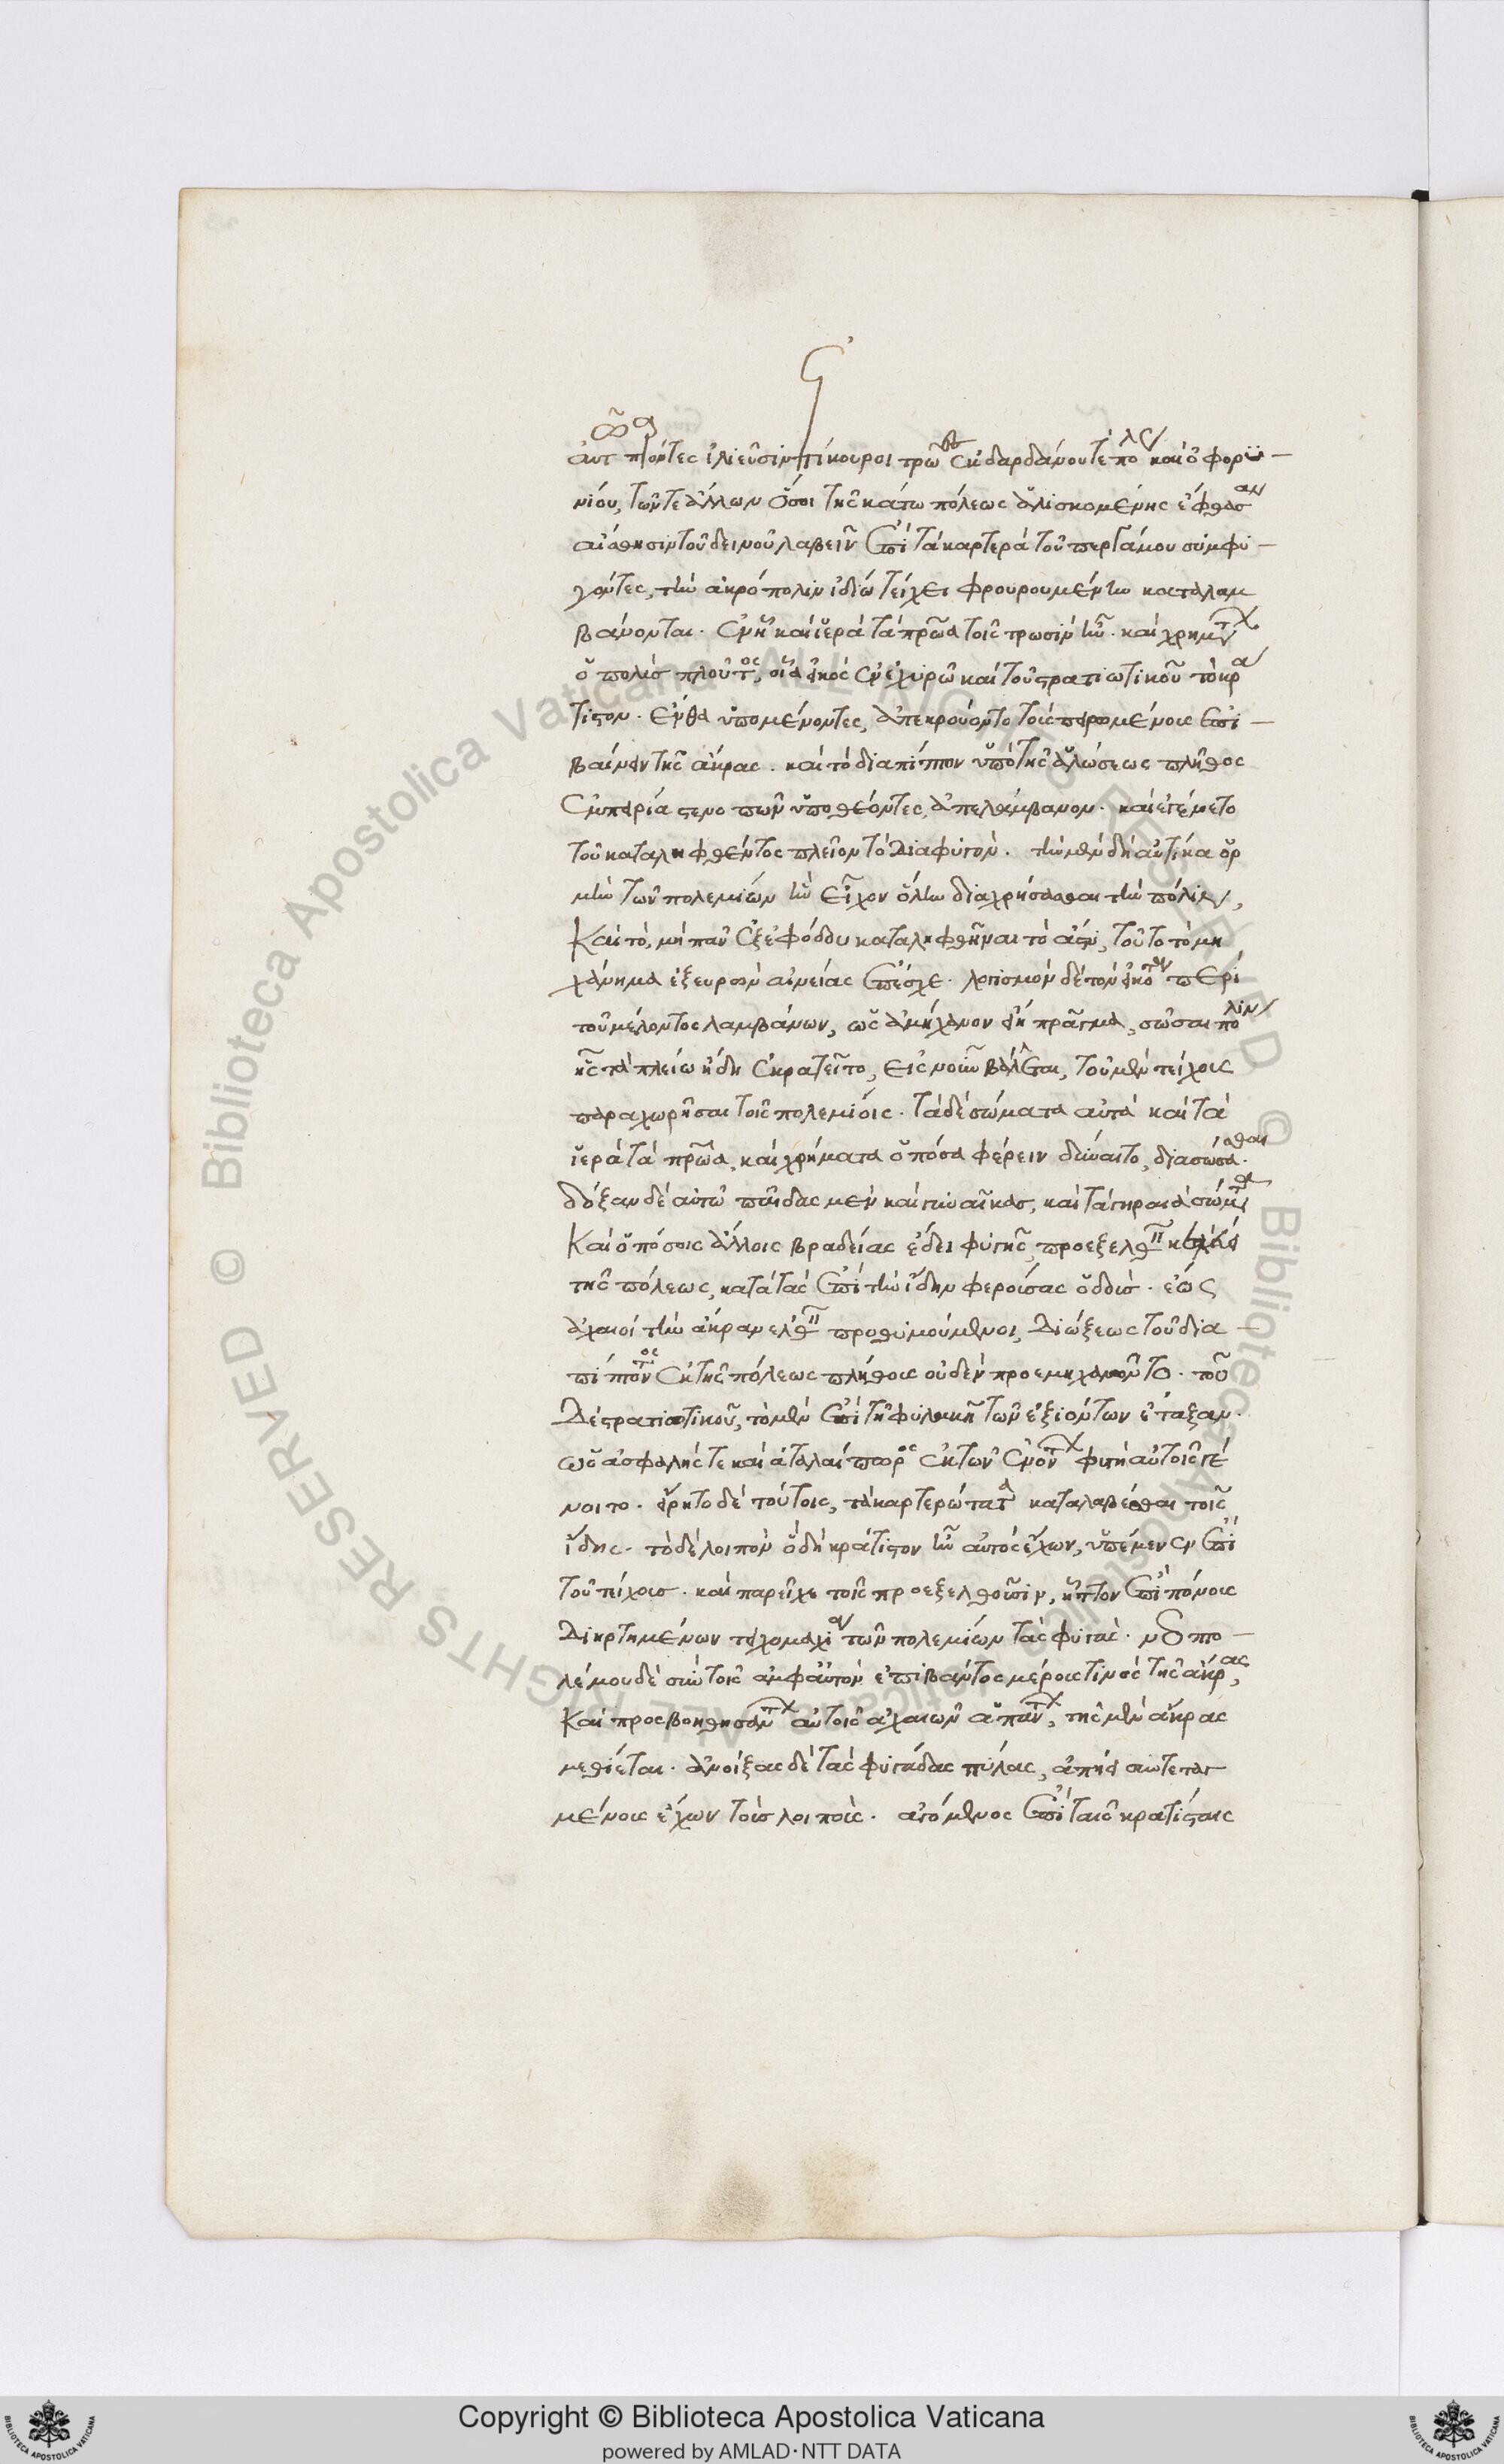 ἀντιπιόντες ἰλιεῦσιν ἐπίκουροι τρώων ἐκ δαρδάνου τε πόλεως καὶ ὀφρυ
νίου, τῶν τε ἄλλων ὅσοι τῆς κάτω πόλεως ἁλισκομένης ἔφθασαν
αἴσθησιν τοῦ δεινοῦ λαβεῖν ἐπὶ τὰ καρτερὰ τοῦ περγάμου συμφυ
γόντες, τὴν ἀκρόπολιν ἰδίῳ τείχει φρουρουμένην καταλαμ
βάνονται. ἐν ᾗ καὶ ἱερὰ τὰ πατρῷα τοῖς τρωσὶν ἦν. καὶ χρημάτων
ὁ πολὺς πλοῦτος, οἷα εἰκὸς ἐν ἐχυρῷ καὶ τοῦ στρατιωτικοῦ τὸ κρά
τιστον. ἔνθα ὑπομένοντες, ἀπεκρούοντο τοὺς πειρωμένους ἐπι
βαίνειν τῆς ἄκρας. καὶ τὸ διαπίπτον ὑπὸ τῆς ἁλώσεως πλῆθος
ἐμπειρίᾳ στενοπῶν ὑποθέοντες, ἀπελάμβανον. καὶ ἐγένετο
τοῦ καταληφθέντος πλεῖον τὸ διαφυγόν. τὴν μὲν δὴ αὐτίκα ὁρ
μὴν τῶν πολεμίων ἣν εἶχον ὅλην διαχρήσασθαι τὴν πόλιν,
καὶ τὸ, μὴ πᾶν ἐξ ἐφόδου καταληφθῆναι τὸ ἄστυ, τοῦτο τὸ μη
χάνημα ἐξευρὼν αἰνείας ἐπέσχε. λογισμὸν δὲ τὸν εἰκότα περὶ
τοῦ μέλοντος λαμβάνων, ὡς ἀμήχανον εἴη πρᾶγμα, σῶσαι πόλιν
ἧς τὰ πλείω ἤδη ἐκρατεῖτο, εἰς νοῦν βάλλεται, τοῦ μὲν τείχους
παραχωρῆσαι τοῖς πολεμίοις. τὰ δὲ σώματα αὐτὰ καὶ τὰ
ἱερὰ τὰ πατρῷα, καὶ χρήματα ὁπόσα φέρειν δύναιτο, διασώσασθαι.
δόξαν δὲ αὐτῷ παῖδας μὲν καὶ γυναῖκας, καὶ τὰ γηραιὰ σώματα
καὶ ὁπόσοις ἄλλοις βραδείας ἔδει φυγῆς, προεξελθεῖν κελεύει
τῆς πόλεως, κατὰ τὰς ἐπὶ τὴν ἴδην φερούσας ὁδοὺς. ἕως
ἀχαιοὶ τὴν ἄκραν ἑλεῖν προθυμούμενοι, διώξεως τοῦ δια
πίπτοντος ἐκ τῆς πόλεως πλήθους οὐδὲν προεμηχανοῦντο. τοῦ
δὲ στρατιωτικοῦ, τὸ μὲν ἐπὶ τῇ φυλακῇ τῶν ἐξιόντων ἔταξαν.
ὡς ἀσφαλής τε καὶ ἀταλαίπωρος ἐκ τῶν ἐνόντων φυγὴ αὐτοῖς γέ
νοιτο. εἴρητο δὲ τούτοις, τὰ καρτερώτατα καταλαβέσθαι τῆς
ἴδης. τὸ δὲ λοιπὸν ὃ δὴ κράτιστον ἦν αὐτὸς ἔχων, ὑπέμενεν ἐπὶ
τοῦ τείχους. καὶ παρεῖχε τοῖς προεξελθοῦσιν, ἧττον ἐπιπόνους
διηρτημένων τειχομαχίᾳ τῶν πολεμίων τὰς φυγὰς. νεοπτο
λέμου δὲ σὺν τοῖς ἀμφ᾽ αὐτὸν ἐπιβάντος μέρους τινὸς τῆς ἄκρας,
καὶ προσβοηθησάντων αὐτοῖς ἀχαιῶν ἁπάντων, τῆς μὲν ἄκρας
μεθίεται. ἀνοίξας δὲ τὰς φυγάδας πύλας, ἀπῄει συντεταγ
μένους ἔχων τοὺς λοιποὺς. ἀγόμενος ἐπὶ ταῖς κρατίσταις